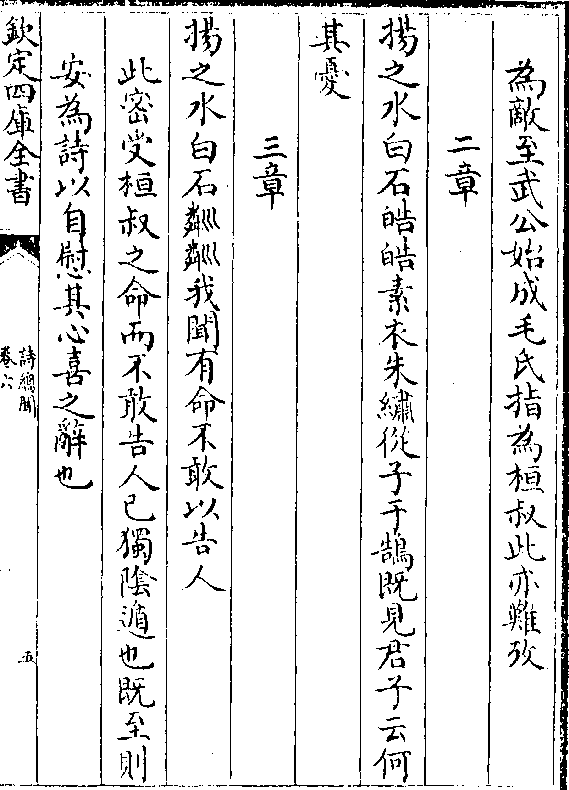 為敵至武公始成毛氏指為桓叔此亦難攷
二章
揚之水白石皓皓素衣朱繡從子于鵠既見君子云何
其憂
三章
揚之水白石粼粼我聞有命不敢以告人
此密受桓叔之命而不敢告人已獨陰遁也既至則
安為詩以自慰其心喜之辭也
欽定四庫全書
詩總聞
卷六
五